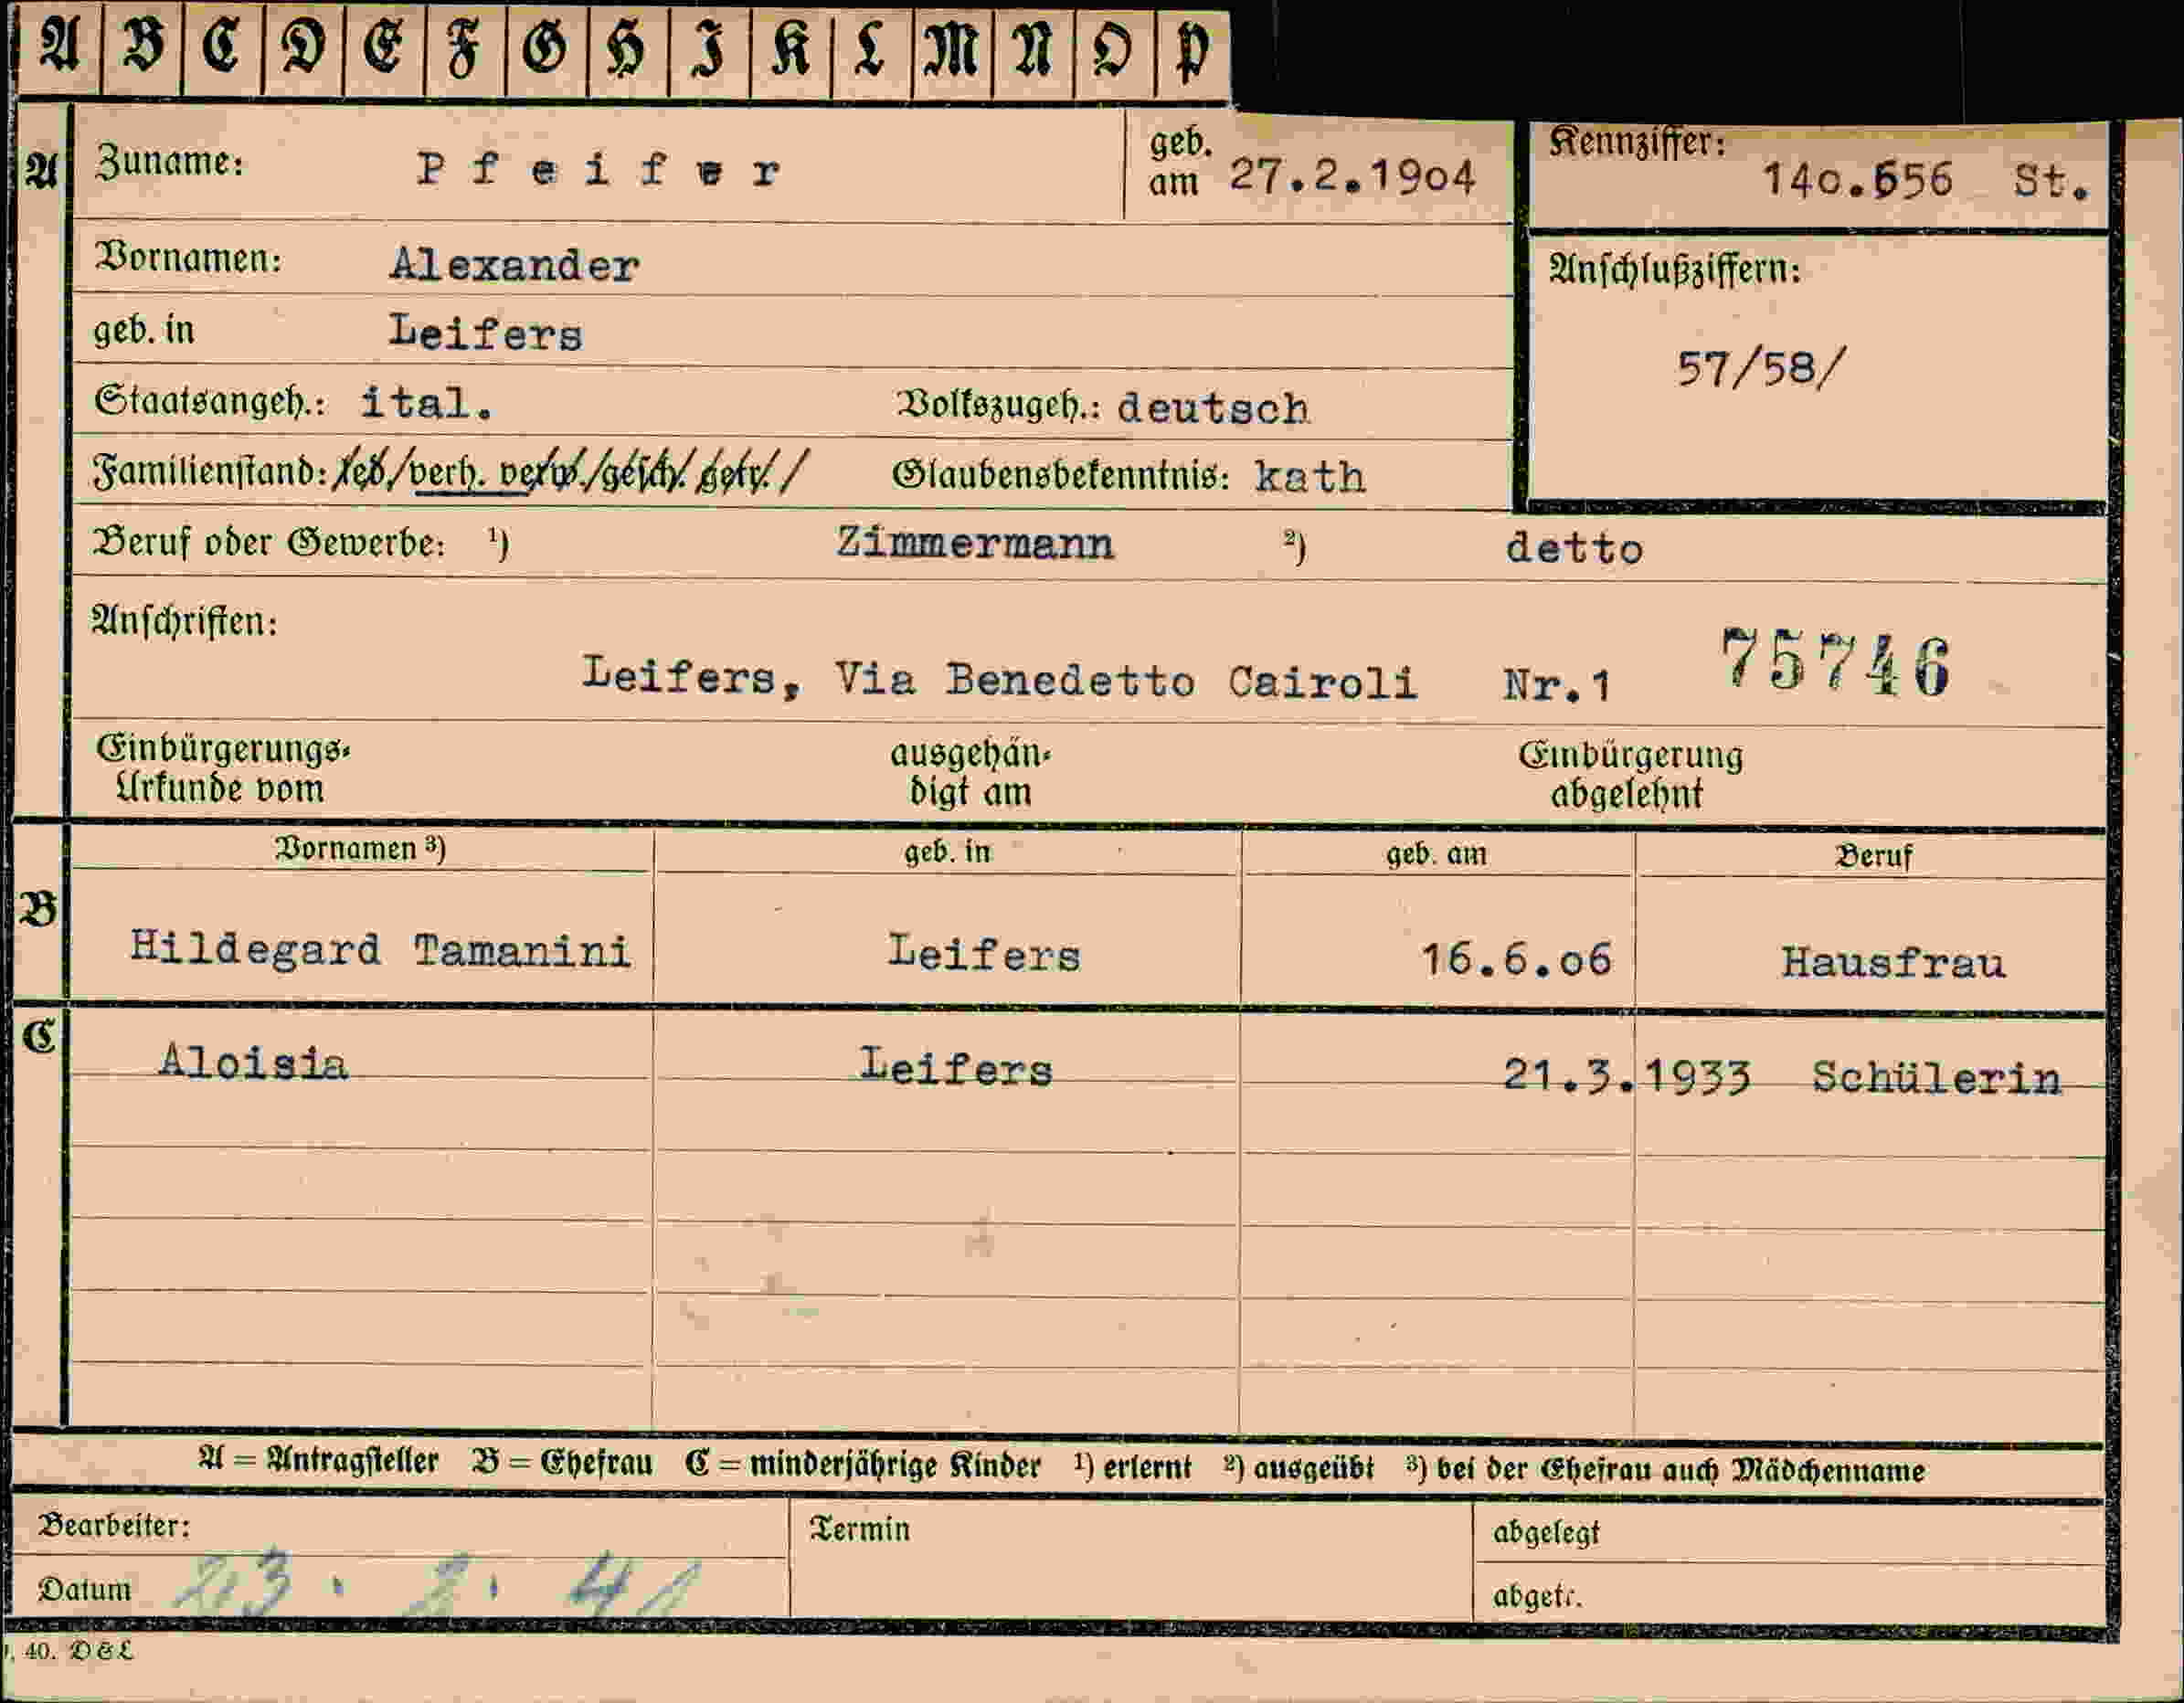 A B C D E F G H I K L M N O P
A Zuname: Pfeifer geb. am 27.2.1904 Kennziffer: 140.656 St.
Vornamen: Alexander Anschlußziffern:
geb. in Leifers 57/58/
Staatsangeh.: ital. Volkszugeh.: deutsch
Familienstand: led/verh. verw./gesch. getr./ Glaubensbekenntnis: kath
Beruf oder Gewerbe: ¹) Zimmermann ²) detto
Anschriften:
Leifers, Via Benedetto Cairoli Nr.1 75746
Einbürgerungs- ausgehän- Einbürgerung
Urkunde vom digt am abgelehnt
Vornamen ³) geb. in geb. am Beruf
B Hildegard Tamanini Leifers 16.6.06 Hausfrau
C Aloisia Leifers 21.3.1933 Schülerin
A = Antragsteller B = Ehefrau C = minderjährige Kinder ¹) erlernt ²) ausgeübt ³) bei der Ehefrau auch Mädchenname
Bearbeiter: Termin abgelegt
Datum abgetr.
40. D&L